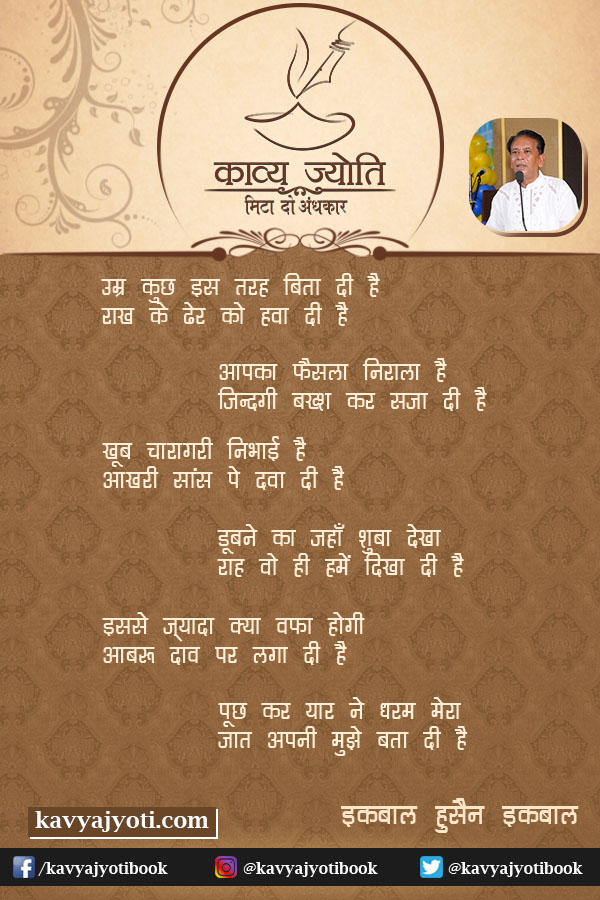 काव्य ज्योति
मिटा दो अंधकार
उम्र कुछ इस तरह बिता दी है
राख के ढेर को हवा दी है
आपका फैसला निराला है
जिन्दगी बख्श कर सजा दी है
खूब चारागरी निभाई है
आखरी सांस पे दवा दी है
डूबने का जहाँ शुबा देखा
राह वो ही हमें दिखा दी है
इससे ज़्यादा क्या वफा होगी
आबरू दाव पर लगा दी है
पूछ कर यार ने धरम मेरा
जात अपनी मुझे बता दी है
इकबाल हुसैन इकबाल
kavyajyoti.com
/kavyajyotibook @kavyajyotibook @kavyajyotibook